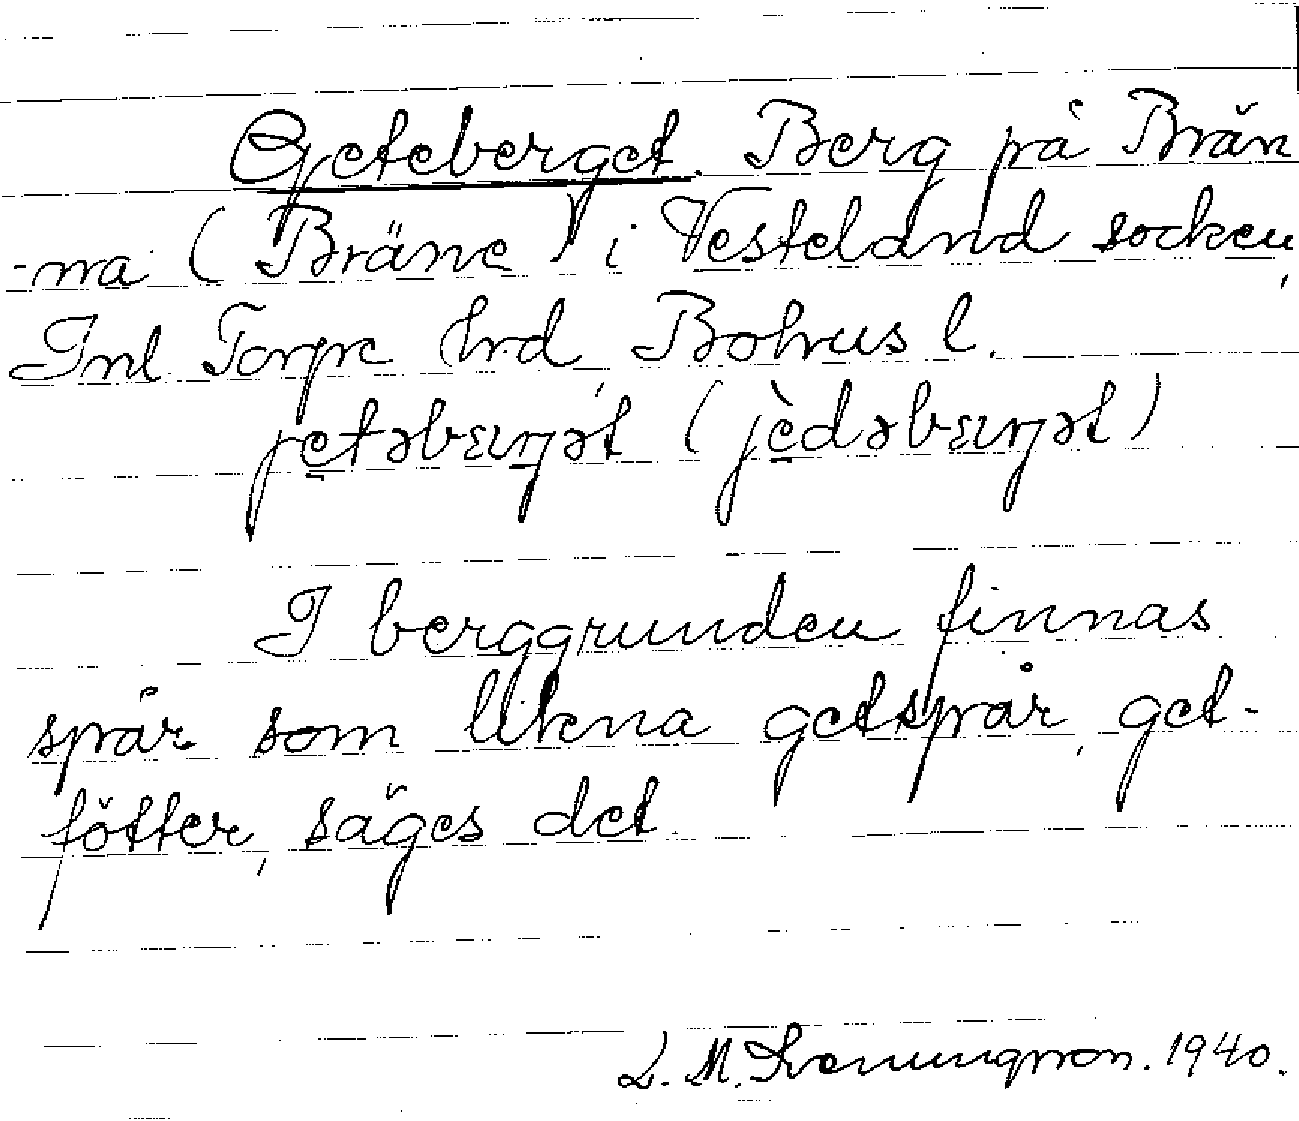 Geteberget. Berg på Brän
-na (Bräne) i Vesteland socken,
Inl Torpe hrd, Bohus l.
jetəbærjət (jèdəbærjət)
I berggrunden finnas
spår som likna getspår, get-
fötter, säges det.
1940.